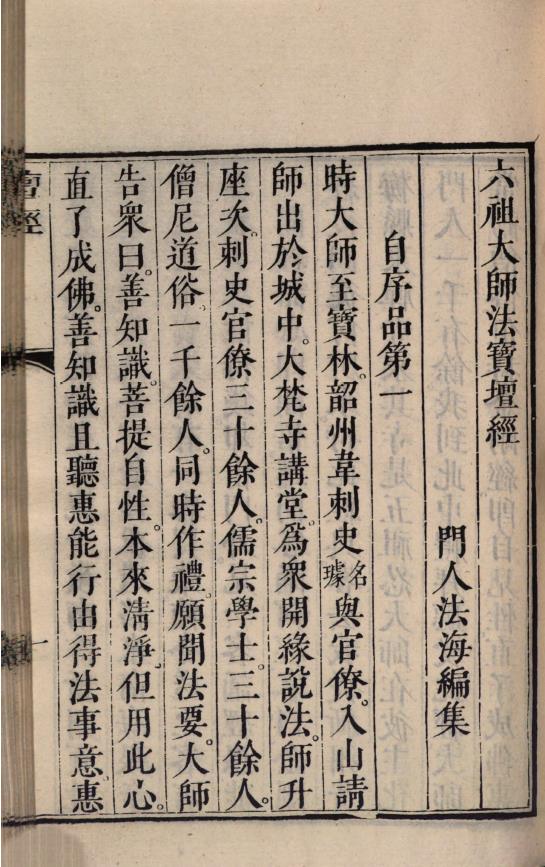 六祖大師法寶壇經
門人法海編集
自序品第一
時大師至寶林。韶州韋刺史名璩與官僚。入山請
師出於城中。大梵寺講堂。為眾開緣說法。師升
座次。刺史官僚三十餘人。儒宗學士。三十餘人。
僧尼道俗。一千餘人。同時作禮。願聞法要。大師
告眾曰。善知識。菩提自性。本來清淨。但用此心。
直了成佛。善知識且聽惠能行由得法事意惠
壇經
一